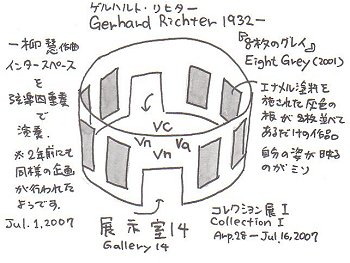 ゲルハルト・リヒター
Gerhard Richter 1932-
『8枚のグレイ』
Eight Grey (2001)
一柳慧作曲
インタースペース
を
弦楽四重奏
で
演奏.
※2年前にも
同様の企画
が行われた
ようです.
Jul.1,2007
エナメル塗料を
施された灰色の
板が8枚並べて
あるだけの作品
自分の姿が映る
のがミソ
Vc
Vn
Va
Vn
展示室14
Gallery 14
コレクション展 I
Collection I
Arp.28-Jul.16,2007